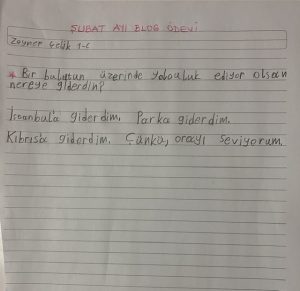 ŞUBAT AYI BLOG ÖDEVİ
Zeynep Çelik 1-C
* Bir bulutun üzerinde yolculuk ediyor olsan
nereye giderdin?
İstanbul'a giderdim. Parka giderdim.
Kıbrısa giderdim. Çünkü, orayı seviyorum.